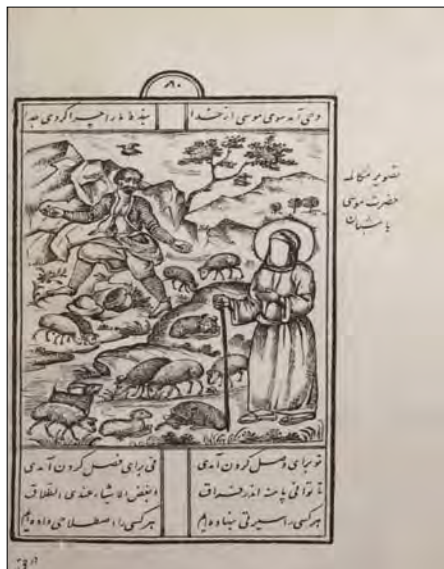 ۸۰
وحی آمد سوی موسی از خدا بنده ما را چرا کردی جدا
تصویر مکالمه
حضرت موسی
با شبان
تو برای وصل کردن آمدی نی برای فصل کردن آمدی
تا توانی پا منه اندر فراق ابغض الاشیاء عندی الطلاق
هر کسی را سیرتی بنهاده‌ایم هر کسی را اصطلاحی داده‌ایم